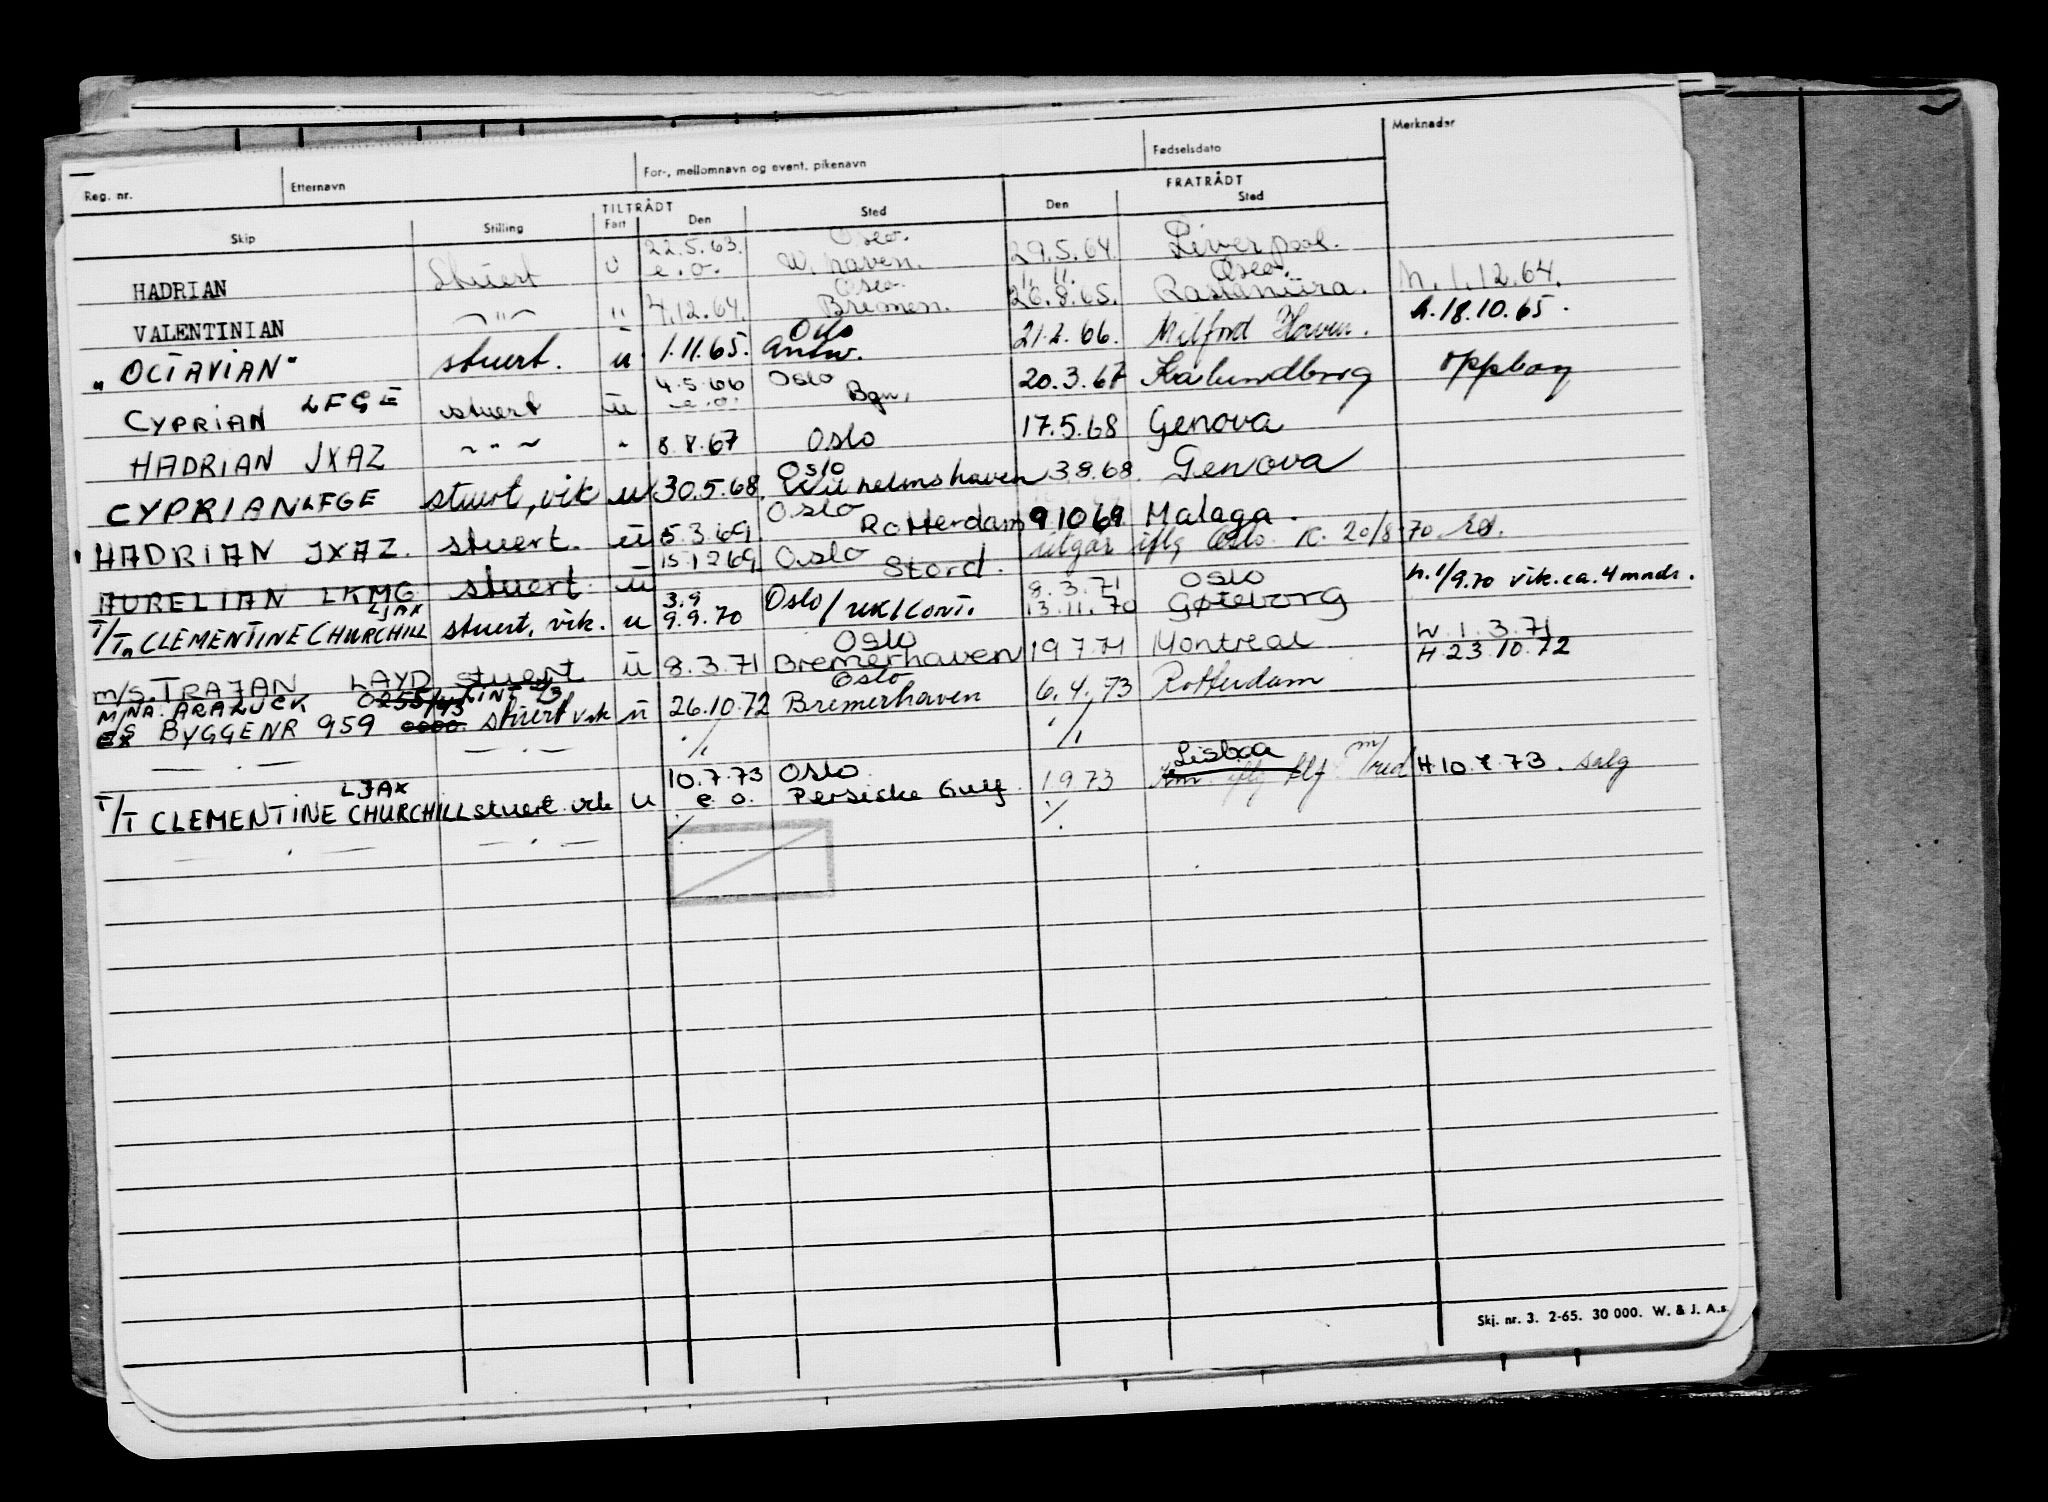 Reg. nr. Etternavn For-, mellomnavn og event. pikenavn Fødselsdato Merknader
TILTRÅDT FRATRÅDT
Skip Stilling Fart Den Sted Den Sted
22.5.63. Oslo.
HADRIAN Stuert u e.o. W.haven. 29.5.64. Liverpool.
Oslo. " " Oslo.
VALENTINIAN ~"~ " 4.12.64. Bremen. 26.8.65. Rastanura. h. 1.12.64.
Oslo h.18.10.65.
"OCTAVIAN" stuert. u 1.11.65. Antw. 21.2.66. Milford Haven.
4.5.66 Oslo
CYPRIAN LFGE stuert u e.o. Bgn. 20.3.67 Kalundborg oppbag
HADRIAN JXAZ ~"~ " 8.8.67 Oslo 17.5.68 Genova
Oslo
CYPRIAN LFGE stuert, vik u 30.5.68. Wilhelmshaven 3.8.68. Genova
Oslo
HADRIAN JXAZ. stuert. u 5.3.69. Rotterdam 9 10 69 Malaga.
15.12.69. Oslo utgår iflg Oslo. K. 20/8-70
AURELIAN LKMG stuert. u Stord.
LJAX 3.9 8.3.71 Oslo h. 1/9.70 vik. ca. 4 mndr.
T/T CLEMENTINE CHURCHILL stuert, vik. u 9.9.70 Oslo/UK/Cont. 13.11.70 Gøteborg
Oslo h. 1.3.71
M/S. TRAJAN LAYD stuert u 8.3.71 Bremerhaven 19.7.71 Montreal H 23.10.72
M/S ARALUCK 0255/43 LINE Oslo
EX BYGGENR 959 stuert vik u 26.10.72 Bremerhaven 6.4.73 Rotterdam
— . — — . — ./. ./.
LJAX 10.7.73 Oslo Lisboa
T/T CLEMENTINE CHURCHILL stuert vik u e.o. Persiske Gulf 1973 iflg tlf m/red H.10.7.73. salg
— . — — . — ./. ./.
Skj. nr. 3. 2-65. 30 000. W. & J. A.s.